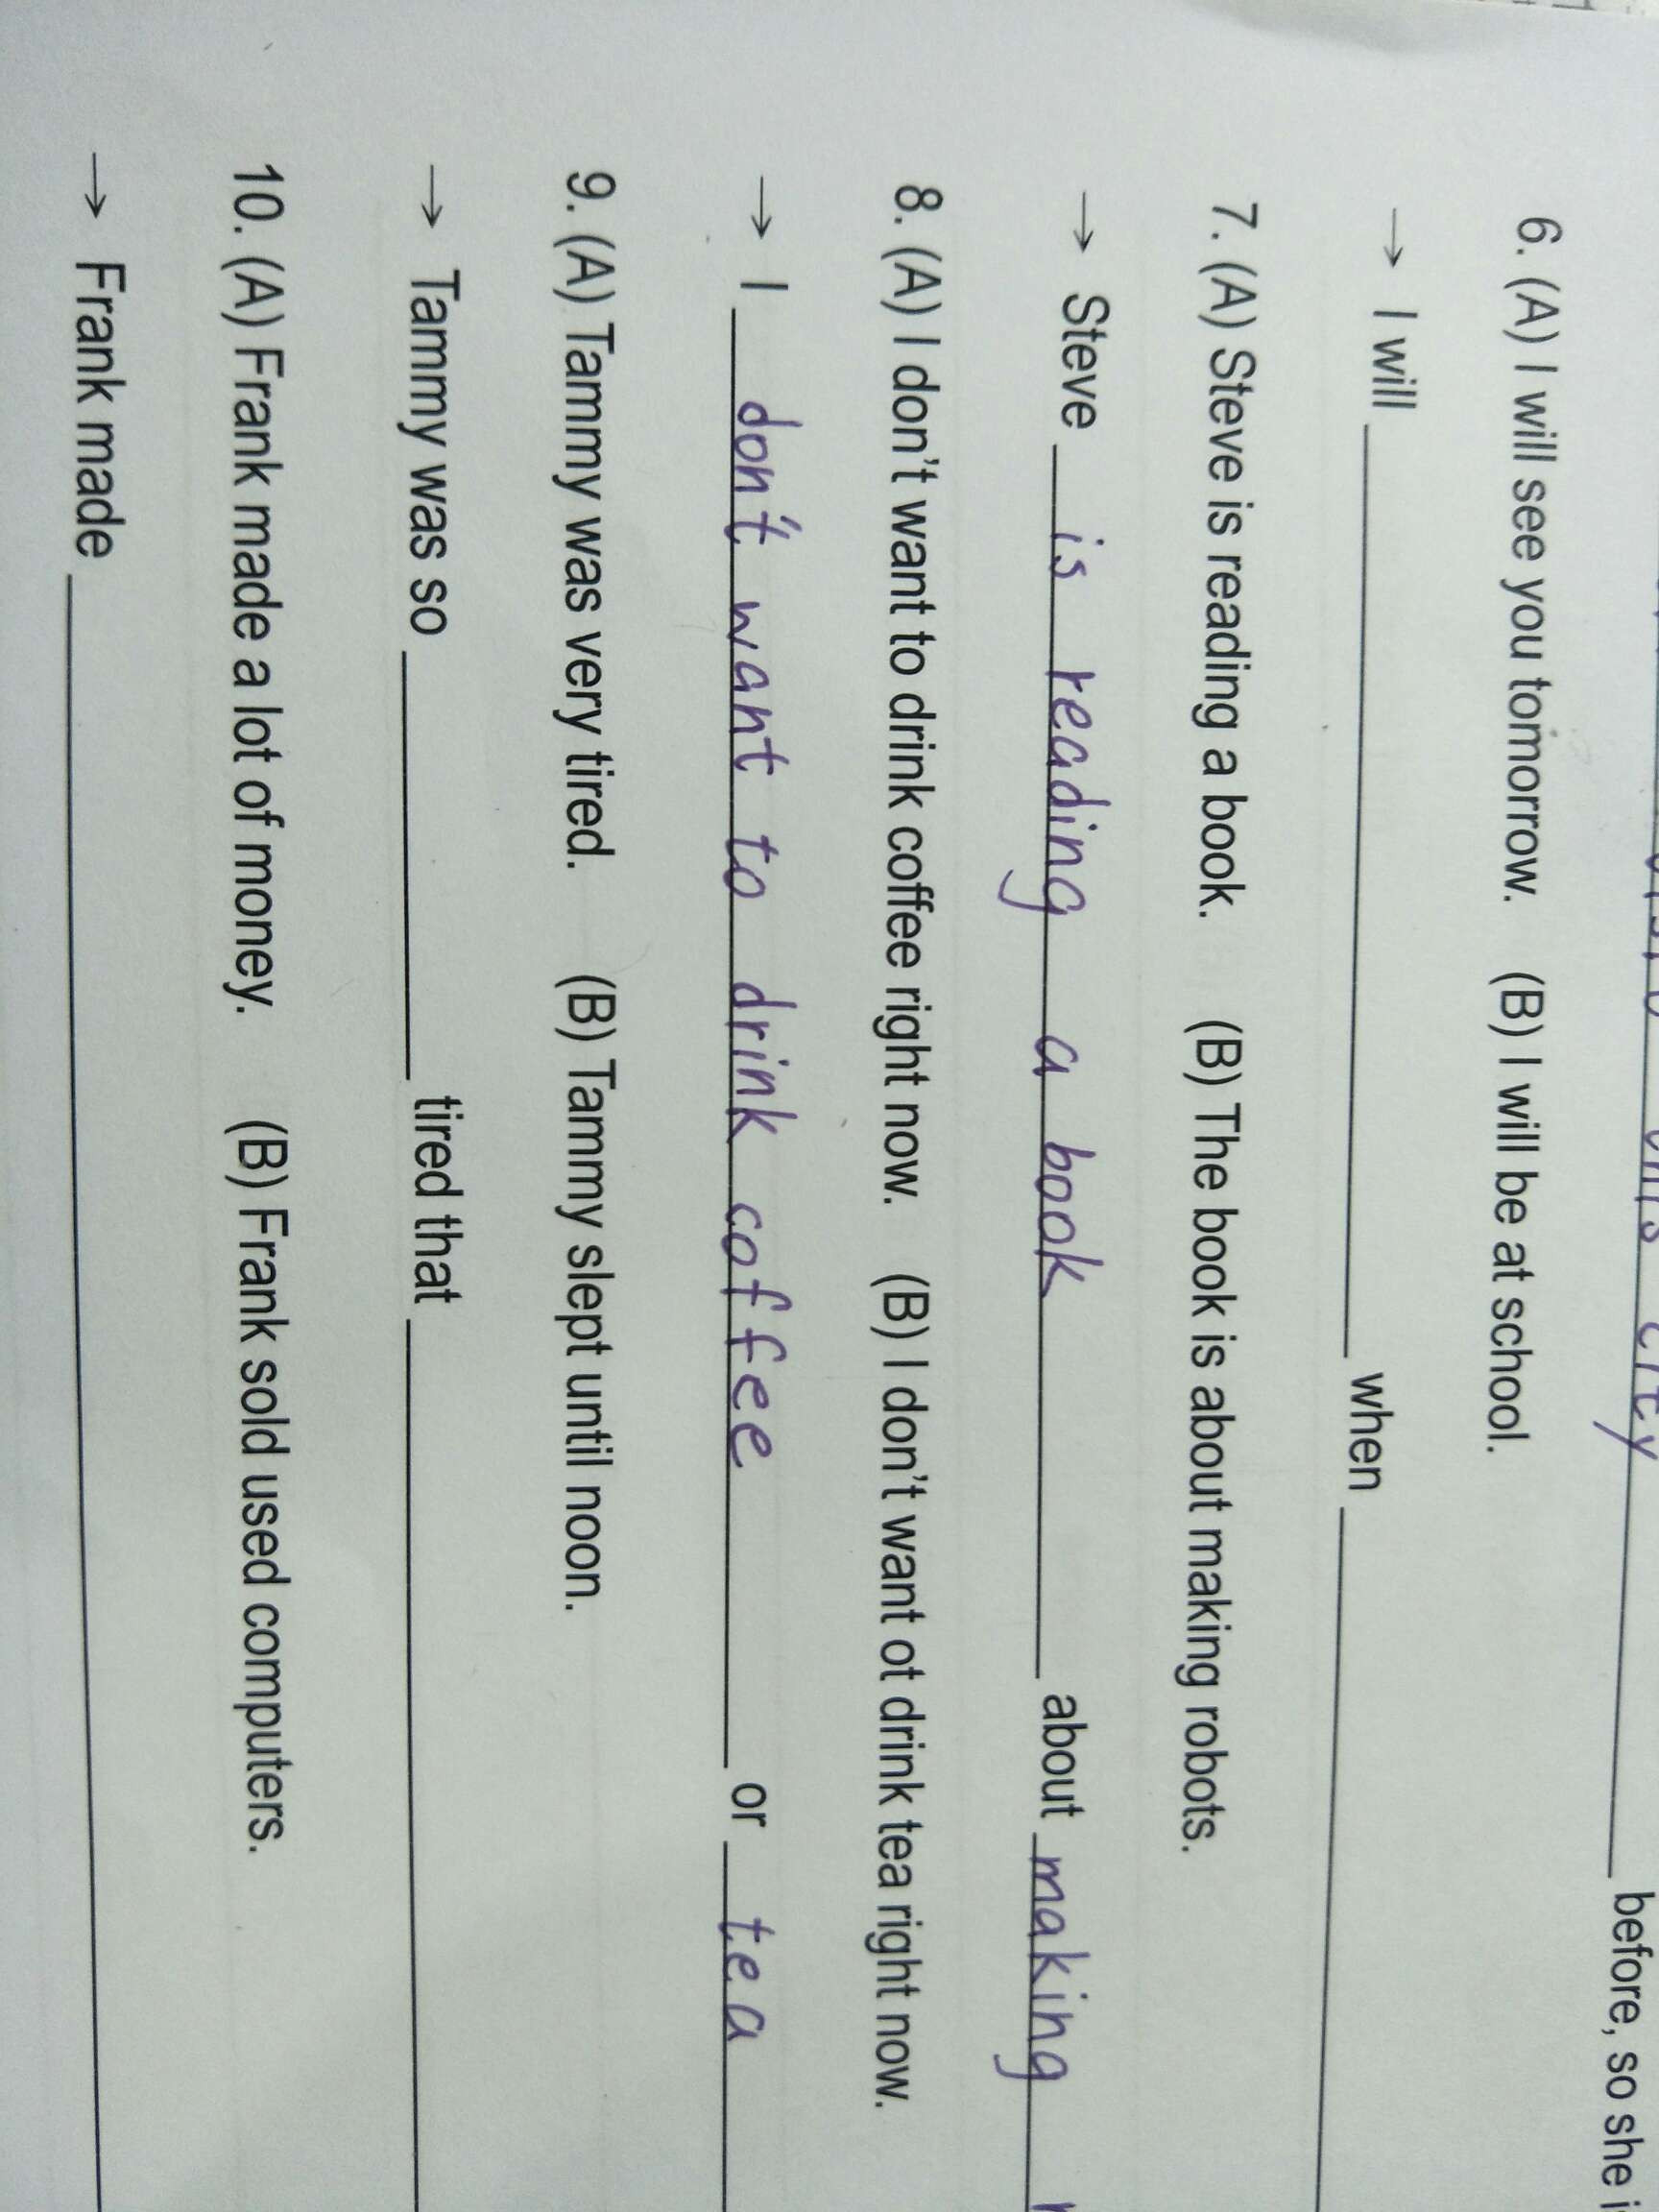 before, so she
6. (A) I will see you tomorrow. (B) I will be at school.
→ I will ______ when ______
7. (A) Steve is reading a book. (B) The book is about making robots.
→ Steve is reading a book about making
8. (A) I don't want to drink coffee right now. (B) I don't want ot drink tea right now.
→ I don't want to drink coffee or tea
9. (A) Tammy was very tired. (B) Tammy slept until noon.
→ Tammy was so ______ tired that ______
10. (A) Frank made a lot of money. (B) Frank sold used computers.
→ Frank made ______